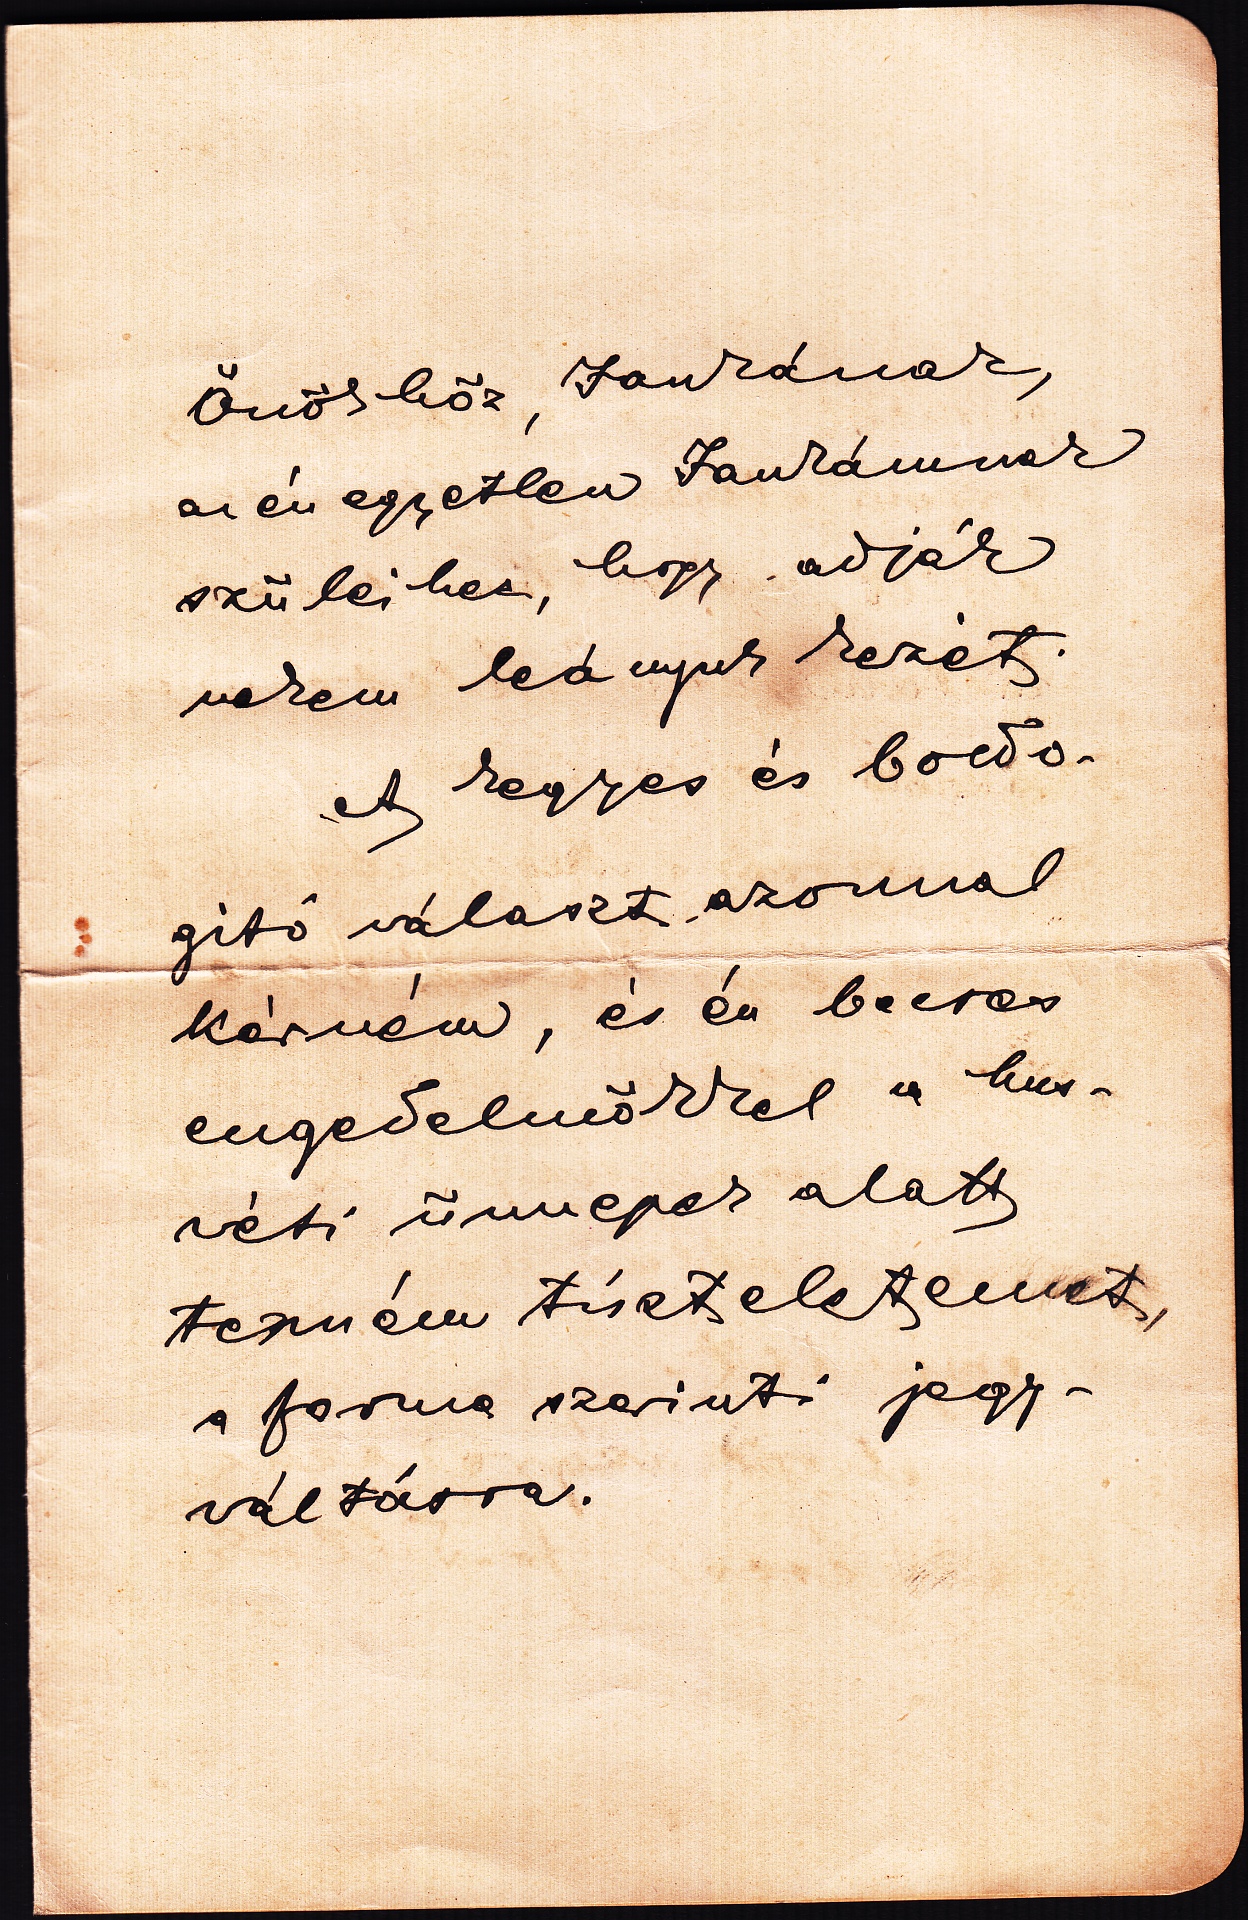 Önökhöz, Jankának,
az én egyetlen Jankámnak
szüleihez, hogy adják
nekem leányuk kezét.
A kegyes és boldo-
gitó választ azonnal
kérném, és én becses
engedelmökkel a hus-
véti ünnepek alatt
tenném tiszteletemet,
a forma szerinti jegy-
váltásra.